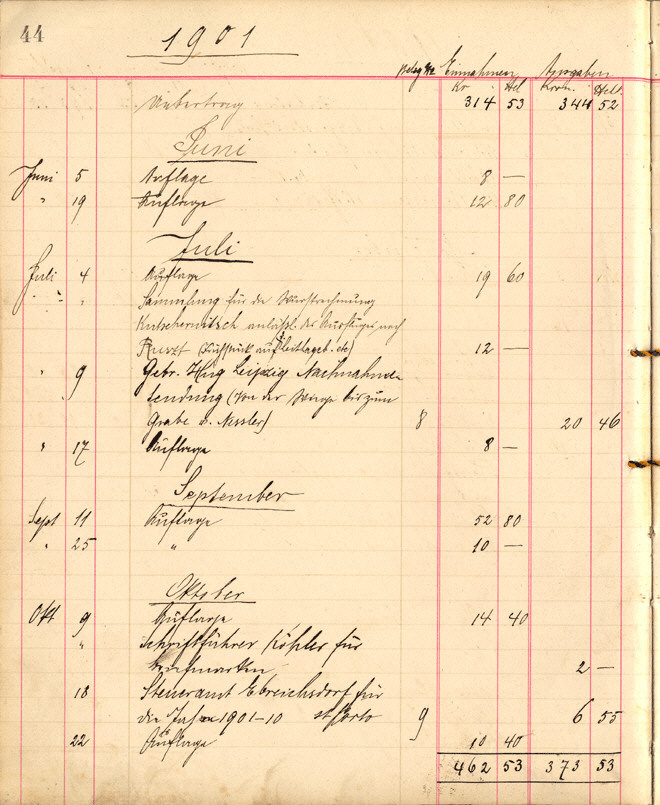 44
1901
Beleg Nr Einnahmen Ausgaben
Kr Hel Kron. Hell.
Uebertrag 314 53 344 52
Juni
Juni 5 Auflage 8 —
" 19 Auflage 12 80
Juli
Juli 4 Auflage 19 60
" " Sammlung für die
anlässl. des Ausfluges nach
(Frühstück auf etc) 12 —
" 9 Gebr. Hug Leipzig Nachnahme
sendung (Von der Wiege bis zum
Grabe v. Nessler) 8 20 46
" 17 Auflage 8 —
September
Sept 11 Auflage 52 80
" 25 " 10 —
Oktober
Okt 9 Auflage 14 40
" Schriftführer Köhler für
Briefmarken 2 —
18 Steueramt Ebreichsdorf für
die Jahre 1901-10 Porto 9 6 55
22 Auflage 10 40
462 53 373 53